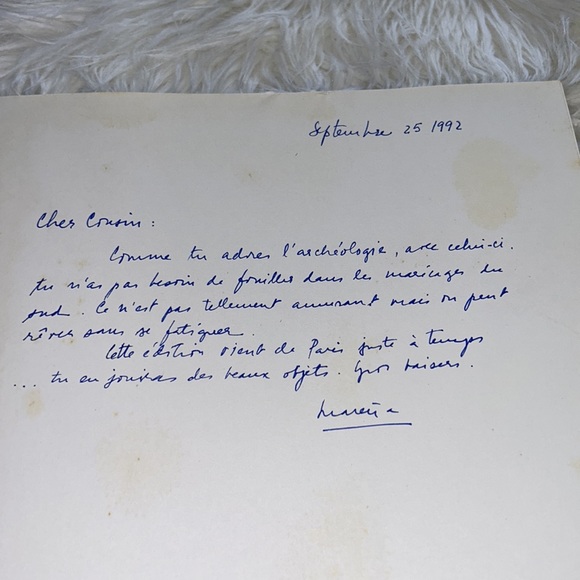 Septembre 25 1992
Cher Cousin :
Comme tu adores l'archéologie, avec celui-ci.
tu n'as pas besoin de fouiller dans les marécages du
sud. Ce n'est pas tellement amusant mais on peut
rêver sans se fatiguer.
Cette édition vient de Paris juste à temps
... tu en jouiras des beaux objets. Gros baisers.